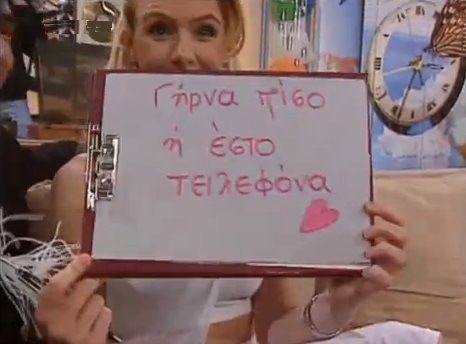 Γήρνα πίσο
ή έστο
τειλεφόνα